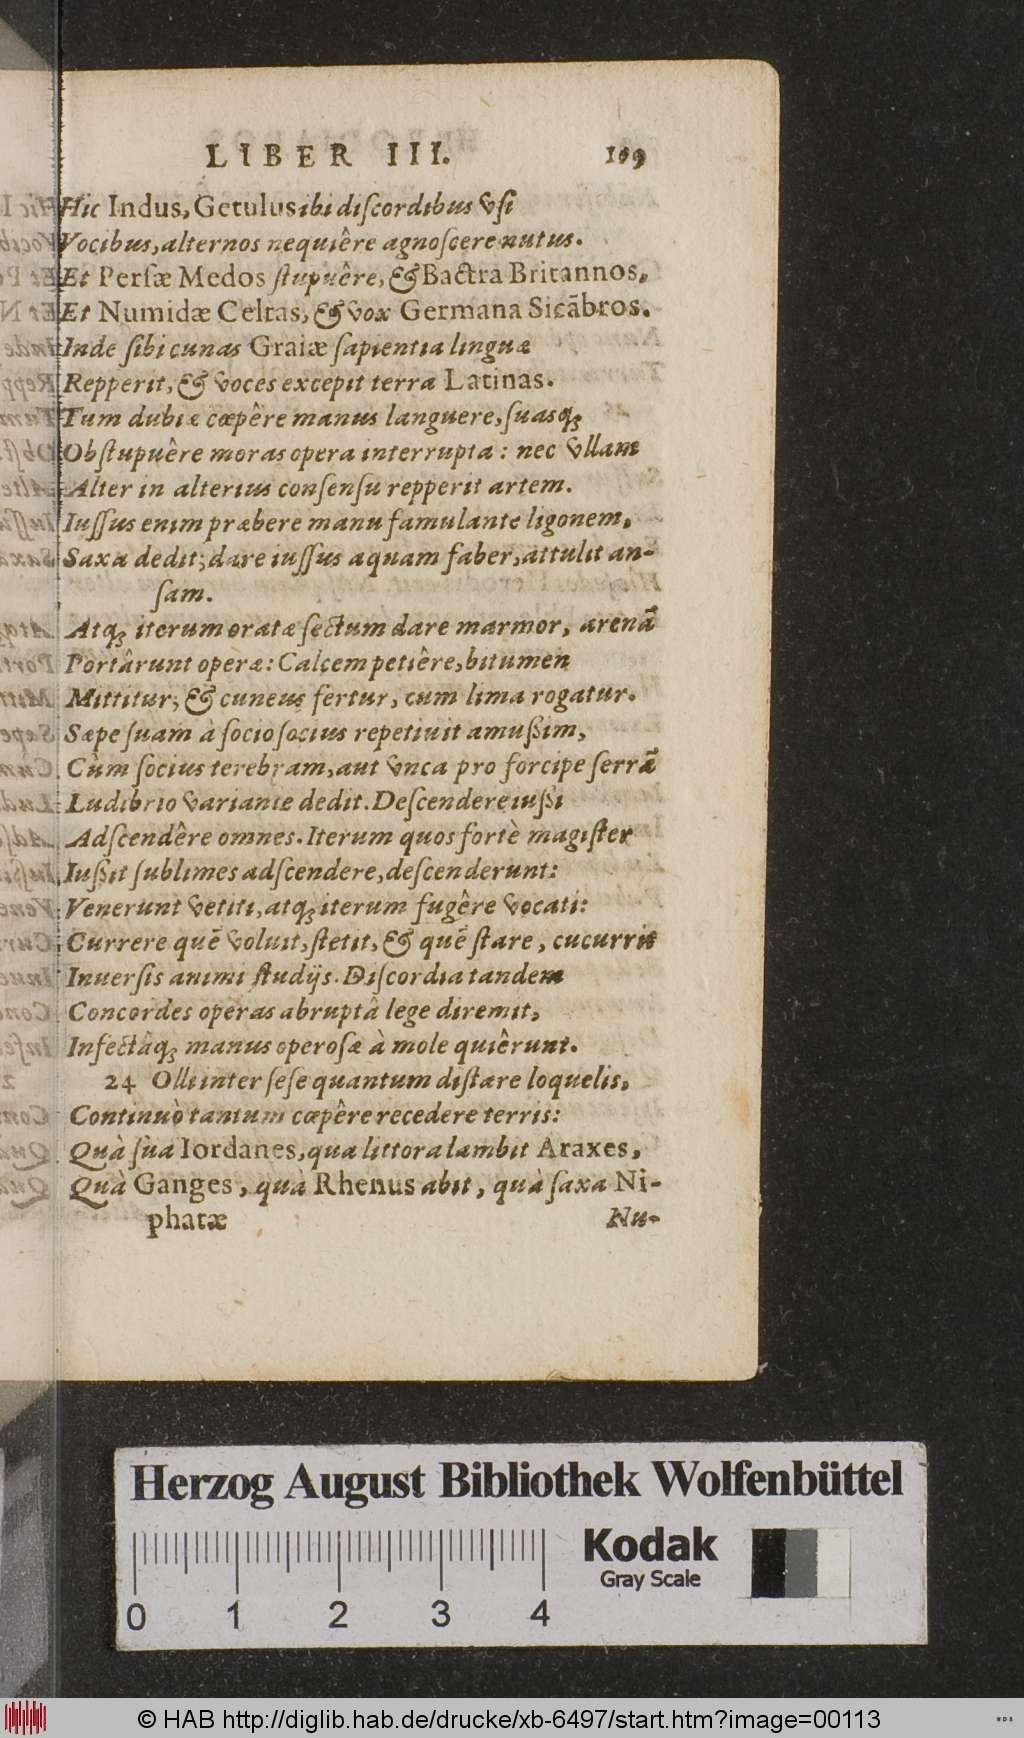 LIBER III. 109
Hic Indus, Getulus ibi discordibus vsi
Vocibus, alternos nequiêre agnoscere nutus.
Et Persæ Medos stupuêre, & Bactra Britannos,
Et Numidæ Celtas, & vox Germana Sicãbros.
Inde sibi cunas Graiæ sapientia linguæ
Repperit, & voces excepit terra Latinas.
Tum dubiæ cœpêre manus languere, suasq́;
Obstupuêre moras opera interrupta: nec vllam
Alter in alterius consensu repperit artem.
Iussus enim præbere manu famulante ligonem,
Saxa dedit; dare iussus aquam faber, attulit an-
sam.
Atq́; iterum oratæ sectum dare marmor, arenã
Portârunt operæ: Calcem petiêre, bitumen
Mittitur; & cuneus fertur, cum lima rogatur.
Sæpe suam à socio socius repetiuit amußim,
Cùm socius terebram, aut vnca pro forcipe serrã
Ludibrio variante dedit. Descendere iußi
Adscendêre omnes. Iterum quos fortè magister
Iußit sublimes adscendere, descenderunt:
Venerunt vetiti, atq́; iterum fugêre vocati:
Currere quẽ voluit, stetit, & quẽ stare, cucurrit
Inuersis animi studijs. Discordia tandem
Concordes operas abruptâ lege diremit,
Infectâq́; manus operosæ à mole quiêrunt.
24 Olli inter sese quantum distare loquelis,
Continuò tantum cœpêre recedere terris:
Quà sua Iordanes, qua littora lambit Araxes,
Quà Ganges, quà Rhenus abit, quà saxa Ni-
phatæ Nu-
Herzog August Bibliothek Wolfenbüttel
Kodak
Gray Scale
0 1 2 3 4
© HAB http://diglib.hab.de/drucke/xb-6497/start.htm?image=00113